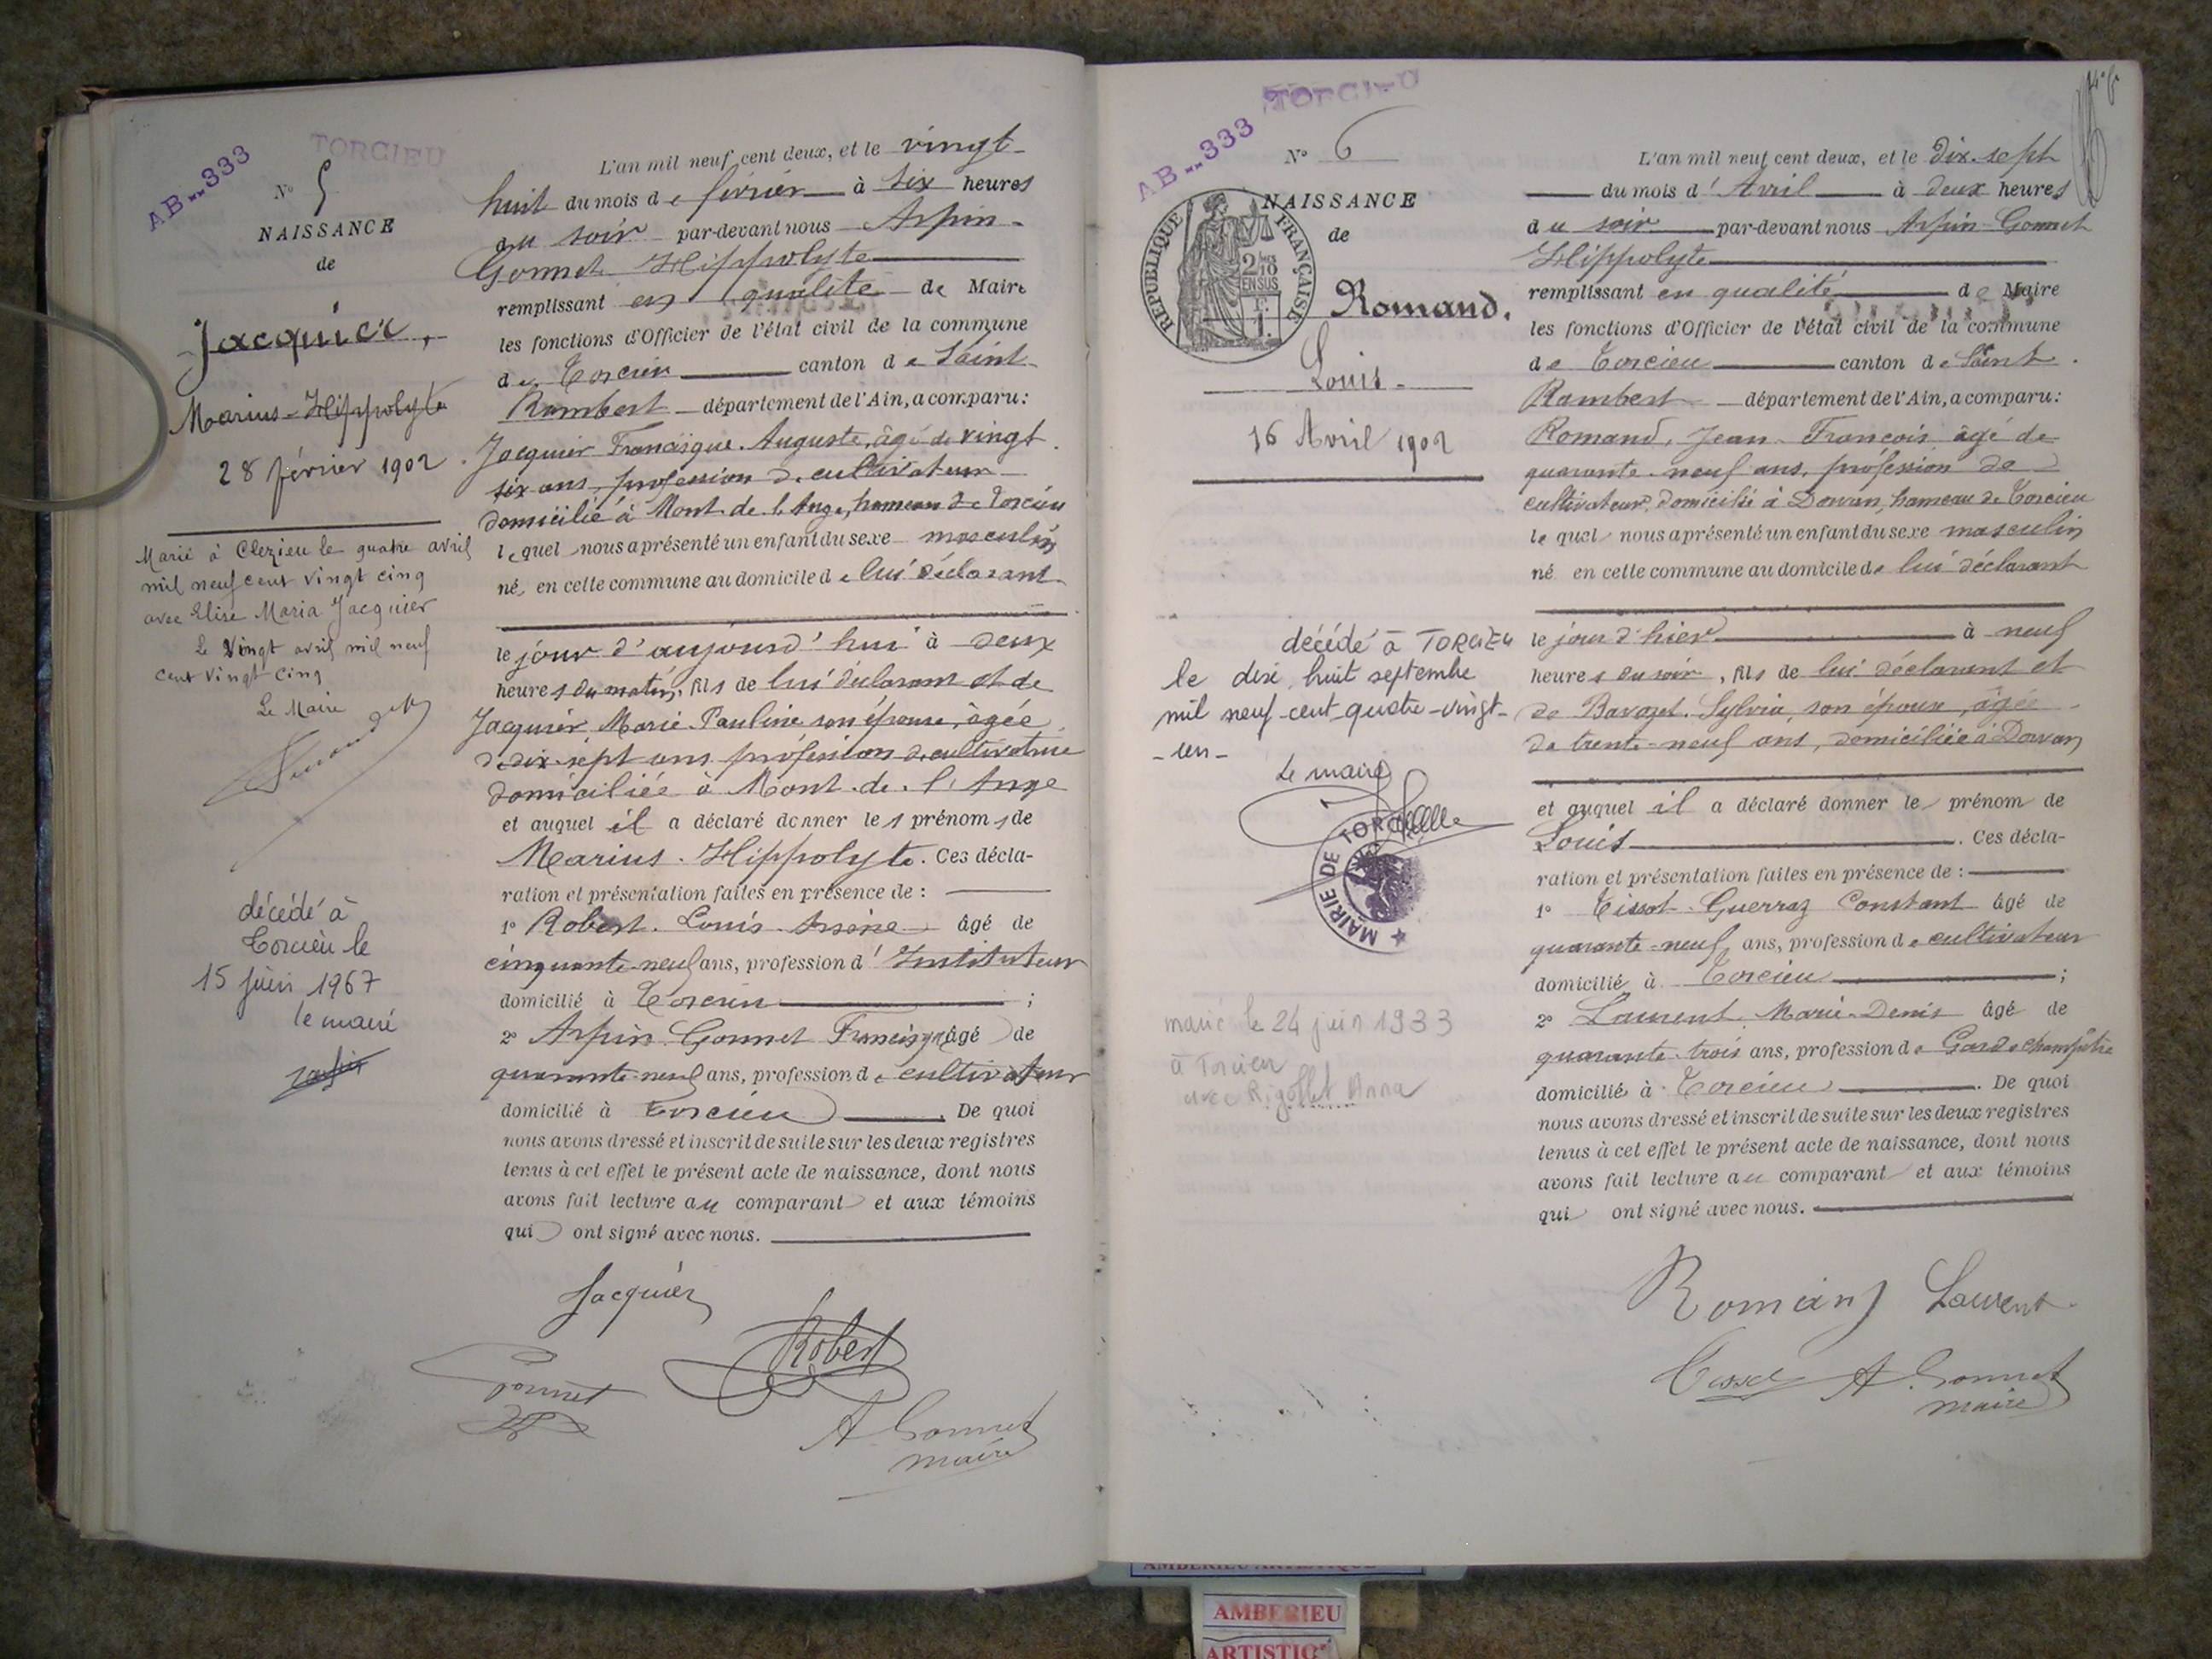 AB--333
TORCIEU
N° 5
NAISSANCE
de
Jacquier,
Marius-Hippolyte
28 février 1902
Marié à Cleyzieu le quatre avril
mil neuf cent vingt cinq
avec Elise Maria Jacquier
Le vingt avril mil neuf
cent vingt cinq
Le Maire
décédé à
Torcieu le
15 juin 1967
le maire
L'an mil neuf cent deux, et le vingt-
huit du mois de février à six heures
du soir par-devant nous Arpin-
Gonnet Hippolyte
remplissant en qualité de Maire
les fonctions d'Officier de l'état civil de la commune
de Torcieu canton de Saint-
Rambert département de l'Ain, a comparu:
Jacquier Francisque Auguste, âgé de vingt
six ans, profession de cultivateur
domicilié à Mont de l'Ange, hameau de Torcieu
lequel nous a présenté un enfant du sexe masculin
né, en cette commune au domicile de lui déclarant
le jour d'aujourd'hui à deux
heures du matin, fils de lui déclarant et de
Jacquier, Marie Pauline son épouse, âgée
de dix-sept ans profession de cultivatrice
domiciliée à Mont-de-l'Ange
et auquel il a déclaré donner les prénoms de
Marius-Hippolyte. Ces décla-
ration et présentation faites en présence de :
1° Robert Louis Arsène âgé de
cinquante-neuf ans, profession d'Instituteur
domicilié à Torcieu ;
2° Arpin Gonnet Francisque âgé de
quarante-neuf ans, profession de cultivateur
domicilié à Torcieu. De quoi
nous avons dressé et inscrit de suite sur les deux registres
tenus à cet effet le présent acte de naissance, dont nous
avons fait lecture au comparant et aux témoins
qui ont signé avec nous.
Jacquier
Gonnet
Robert
A Gonnet
maire
AB--333
TORCIEU
N° 6
NAISSANCE
de
REPUBLIQUE FRANÇAISE
2/10
EN SUS
1 F.
Romand,
Louis
16 Avril 1902
décédé à TORCIEU
le dix huit septembre
mil neuf-cent-quatre-vingt-
-un-
Le maire
MAIRIE DE TORCIEU
marié le 24 juin 1933
à Torcieu
avec Rigollet Anna
L'an mil neuf cent deux, et le dix-sept
du mois d'Avril à deux heures
du soir par-devant nous Arpin-Gonnet
Hippolyte
remplissant en qualité de Maire
les fonctions d'Officier de l'état civil de la commune
de Torcieu canton de Saint-
Rambert département de l'Ain, a comparu:
Romand, Jean-François âgé de
quarante-neuf ans, profession de
cultivateur, domicilié à Dorvan, hameau de Torcieu
lequel nous a présenté un enfant du sexe masculin
né en cette commune au domicile de lui déclarant
le jour d'hier à neuf
heures du soir, fils de lui déclarant et
de Bavozet Sylvia, son épouse, âgée
de trente-neuf ans, domiciliée à Dorvan
et auquel il a déclaré donner le prénom de
Louis. Ces décla-
ration et présentation faites en présence de :
1° Tissot-Guerraz Constant âgé de
quarante-neuf ans, profession de cultivateur
domicilié à Torcieu ;
2° Laurent Marie-Denis âgé de
quarante-trois ans, profession de Garde champêtre
domicilié à Torcieu. De quoi
nous avons dressé et inscrit de suite sur les deux registres
tenus à cet effet le présent acte de naissance, dont nous
avons fait lecture au comparant et aux témoins
qui ont signé avec nous.
Romand Laurent
Tissot A. Gonnet
maire
AMBERIEU ARTISTIQUE
AMBERIEU
ARTISTIQ